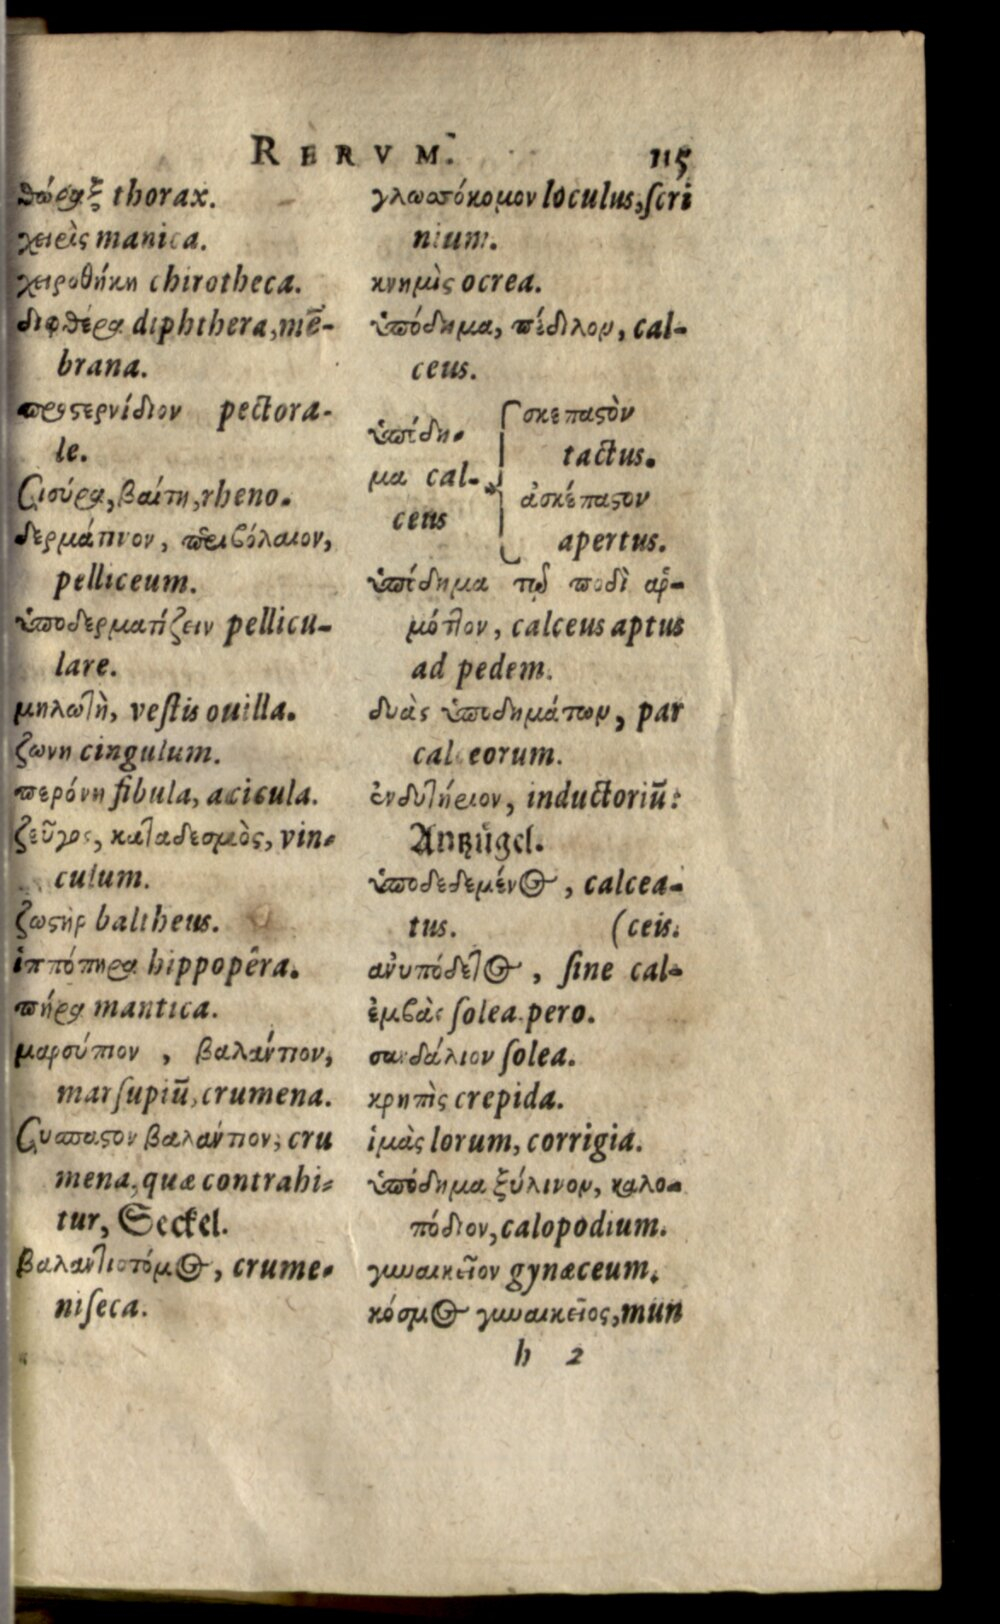 RERVM. 115
θώραξ thorax.
χειρὶς manica.
χειροθήκη chirotheca.
διφθέρα diphthera, mē-
brana.
προστερνίδιον pectora-
le.
Σισύρα, βαίτη, rheno.
δερμάτινον, περιβόλαιον,
pelliceum.
ὑποδερματίζειν pellicu-
lare.
μηλωτὴ, veſtis ouilla.
ζωνη cingulum.
περόνη fibula, acicula.
ζεῦγος, καταδεσμὸς, vin-
culum.
ζωστὴρ baltheus.
ἱππόπηρα hippopêra.
πήρα mantica.
μαρσύπιον, βαλάντιον,
marſupiū, crumena.
Συσπαστον βαλάντιον, cru
mena, quæ contrahi-
tur, Seckel.
βαλαντιοτόμος, crume-
niſeca.
γλωσσόκομον loculus, ſcri
nium.
κνημὶς ocrea.
ὑπόδημα, πέδιλον, cal-
ceus.
ὑπόδη-
μα cal-
ceus
σκεπαστὸν
tactus.
ἀσκέπαστον
apertus.
ὑπόδημα τῷ ποδὶ ἁρ-
μόττον, calceus aptus
ad pedem.
δυὰς ὑποδημάτων, par
calceorum.
ἐνδυτήριον, inductoriū:
Antzügel.
ὑποδεδεμένος, calcea-
tus. (ceis.
ἀνυπόδετος, ſine cal-
ἐμβὰς ſolea pero.
σανδάλιον ſolea.
κρηπὶς crepida.
ἱμὰς lorum, corrigia.
ὑπόδημα ξύλινον, καλο-
πόδιον, calopodium.
γυναικεῖον gynæceum.
κόσμος γυναικεῖος, mun
h 2